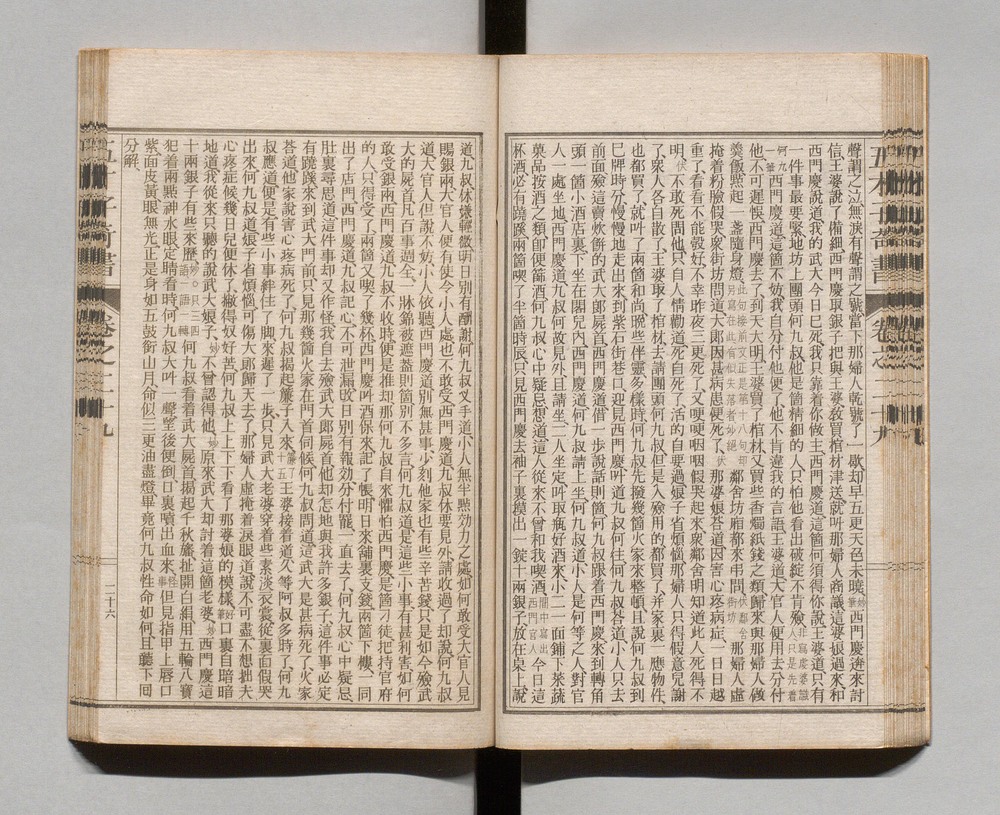 聲謂之泣無淚有聲謂之號當下那婦人乾號了一歇却早五更天色未曉妙筆西門慶逩來討
信王婆說了備細西門慶取銀子把與王婆敎買棺材津送就叫那婦人商議這婆娘過來和
西門慶說道我的武大今日已死我只靠着你做主西門慶道這箇何須得你說王婆道只有
一件事最要緊地坊上團頭何九叔他是箇精細的人只怕他看出破綻不肯殮
他不可遲悞西門慶去了到天大明王婆買了棺材又買些香燭紙錢之類歸來與那婦人做
羹飯㸃起一盞隨身燈鄰舍坊廂都來弔問那婦人虛
掩着粉臉假哭衆街坊問道大郎因甚病患便死了那婆娘荅道因害心疼病症一日日越
重了看看不能彀好不幸昨夜三更死了又哽哽咽咽假哭起來衆鄰舍明知道此人死得不
明不敢死問他只自人情勸道死自死了活的自要過娘子省煩惱那婦人只得假意兒謝
了衆人各自散了王婆取了棺材去請團頭何九叔但是入殮用的都買了并家裏一應物件
也都買了就叫了兩箇和尚晚些伴靈多樣時何九叔先撥幾箇火家來整頓且說何九叔到
巳牌時分慢慢地走出來到紫石街巷口迎見西門慶叫道九叔何往何九叔荅道小人只去
前面殮這賣炊餅的武大郎屍首西門慶道借一步說話則箇何九叔跟着西門慶來到轉角
頭一箇小酒店裏坐下在閣兒內西門慶道何九叔請上坐何九叔道小人是何等之人對官
人一處坐地西門慶道九叔何故見外且請坐二人坐定叫取瓶好酒來小二一面鋪下菜蔬
菓品按酒之類卽便篩酒何九叔心中疑忌想道這人從來不曾和我喫酒今日這
杯酒必有蹺蹊兩箇喫了半箇時辰只見西門慶去袖子裏摸出一錠十兩銀子放在桌上說
道九叔休嫌輕微明日別有酬謝何九叔叉手道小人無半㸃効力之處如何敢受大官人見
賜銀兩大官人便有使令小人處也不敢受西門慶道九叔休要見外請收過了却說何九叔
道大官人但說不妨小人依聽西門慶道別無甚事少刻他家也有些辛苦錢只是如今殮武
大的屍首凡百事週全一牀錦被遮蓋則箇別不多言何九叔道是這些小事有甚利害如何
敢受銀兩西門慶道九叔不收時便是推却那何九叔自來懼怕西門慶是箇刁徒把持官府
的人只得受了兩箇又喫了幾杯西門慶叫酒保來記了帳明日來鋪裏支錢兩箇下樓一同
出了店門西門慶道九叔記心不可泄漏改日別有報効分付罷一直去了何九叔心中疑忌
肚裏尋思道這件事却又作怪我自去殮武大郎屍首他却怎地與我許多銀子這件事必定
有蹺蹊來到武大門前只見那幾箇火家在門首伺候何九叔問道這武大是甚病死了火家
荅道他家說害心疼病死了何九叔揭起簾子入來王婆接着道久等阿叔多時了何九
叔應道便是有些小事絆住了脚來遲了一步只見武大老婆穿着些素淡衣裳從裏面假哭
出來何九叔道娘子省煩惱可傷大郎歸天去了那婦人虛掩着淚眼道說不可盡不想拙夫
心疼症候幾日兒便休了撇得奴好苦何九叔上上下下看了那婆娘的模樣口裏自暗暗
地道我從來只聽的說武大娘子不曾認得他原來武大却討着這箇老婆西門慶這
十兩銀子有些來歷何九叔看着武大屍首揭起千秋旛扯開白絹用五輪八寶
犯着兩㸃神水眼定睛看時何九叔大叫一聲望後便倒口裏噴出血來但見指甲上唇口
紫面皮黃眼無光正是身如五鼓銜山月命似三更油盡燈畢竟何九叔性命如何且聽下回
分解
卷之二十九
二十六